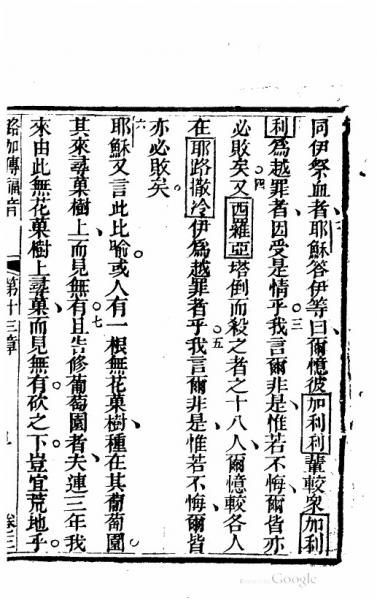 同伊祭血者耶穌答伊等曰爾憶彼加利利輩較衆加利
利爲越罪者因受是情乎我言爾非是惟若不悔爾皆亦
三
必敗矣又西羅亞塔倒而殺之者之十八人爾憶較各人
四
在耶路撒冷伊爲越罪者乎我言爾非是惟若不悔爾皆
五
亦必敗矣
耶穌又言此比喻或人有一根無花菓樹種在其葡萄園
六
其來尋菓樹上而見無有且告修葡萄園者夫連三年我
七
來由此無花菓樹上尋菓而見無有砍之下豈宜荒地乎
路加傳福音
第十三章
Google